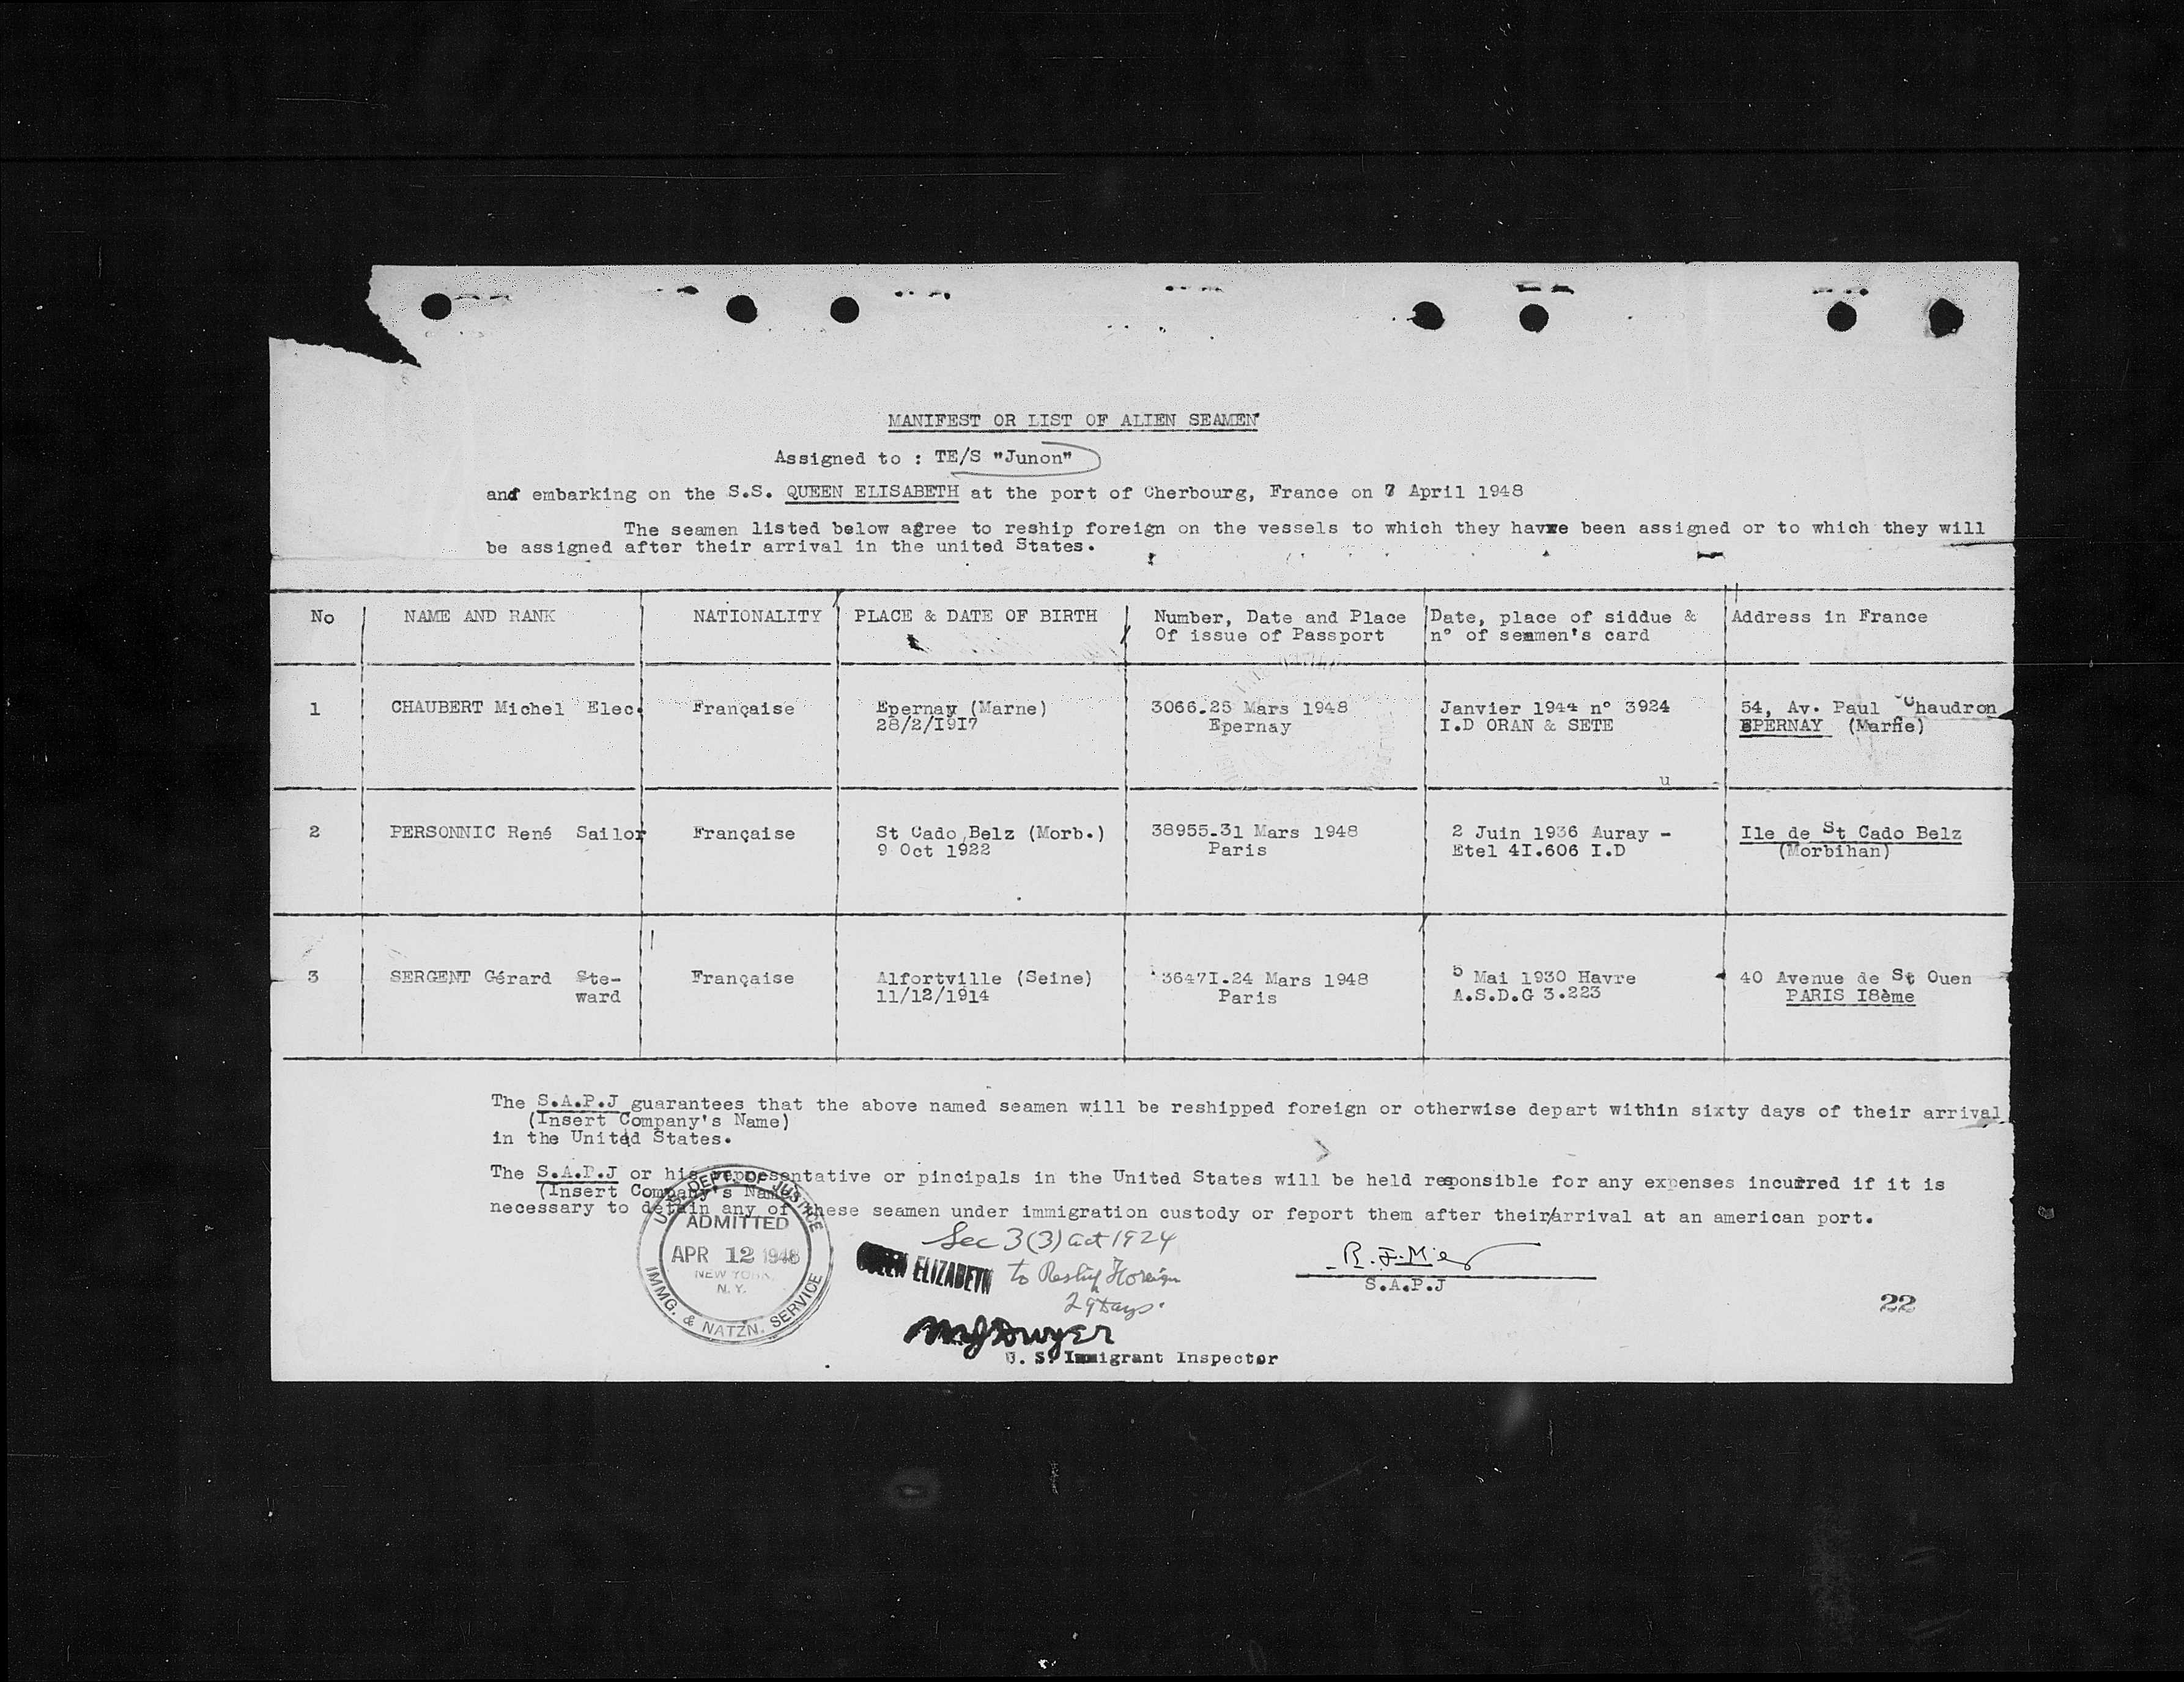 MANIFEST OR LIST OF ALIEN SEAMEN
Assigned to : TE/S "Junon"
and embarking on the S.S. QUEEN ELISABETH at the port of Cherbourg, France on 7 April 1948
The seamen listed below agree to reship foreign on the vessels to which they have been assigned or to which they will
be assigned after their arrival in the united States.
No NAME AND RANK NATIONALITY PLACE & DATE OF BIRTH Number, Date and Place Date, place of siddue & Address in France
Of issue of Passport n° of seamen's card
1 CHAUBERT Michel Elec. Française Epernay (Marne) 3066.25 Mars 1948 Janvier 1944 n° 3924 54, Av. Paul Chaudron
28/2/I9I7 Epernay I.D ORAN & SETE EPERNAY (Marne)
u
2 PERSONNIC René Sailor Française St Cado Belz (Morb.) 38955.31 Mars 1948 2 Juin 1936 Auray - Ile de St Cado Belz
9 Oct 1922 Paris Etel 4I.606 I.D (Morbihan)
3 SERGENT Gérard Ste- Française Alfortville (Seine) 3647I.24 Mars 1948 5 Mai 1930 Havre 40 Avenue de St Ouen
ward 11/12/1914 Paris A.S.D.G 3.223 PARIS I8ème
The S.A.P.J guarantees that the above named seamen will be reshipped foreign or otherwise depart within sixty days of their arrival
(Insert Company's Name)
in the United States.
The S.A.P.J or his representative or pincipals in the United States will be held reponsible for any expenses incurred if it is
(Insert Company's Name)
necessary to detain any of these seamen under immigration custody or feport them after their/arrival at an american port.
U.S. DEPT. OF JUSTICE
ADMITTED
APR 12 1948
NEW YORK,
N.Y.
IMMG. & NATZN. SERVICE
Sec 3(3) act 1924
QUEEN ELIZABETH to Reship Foreign
29 Days.
S.A.P.J
22
MJ Dwyer
U. S. Immigrant Inspector